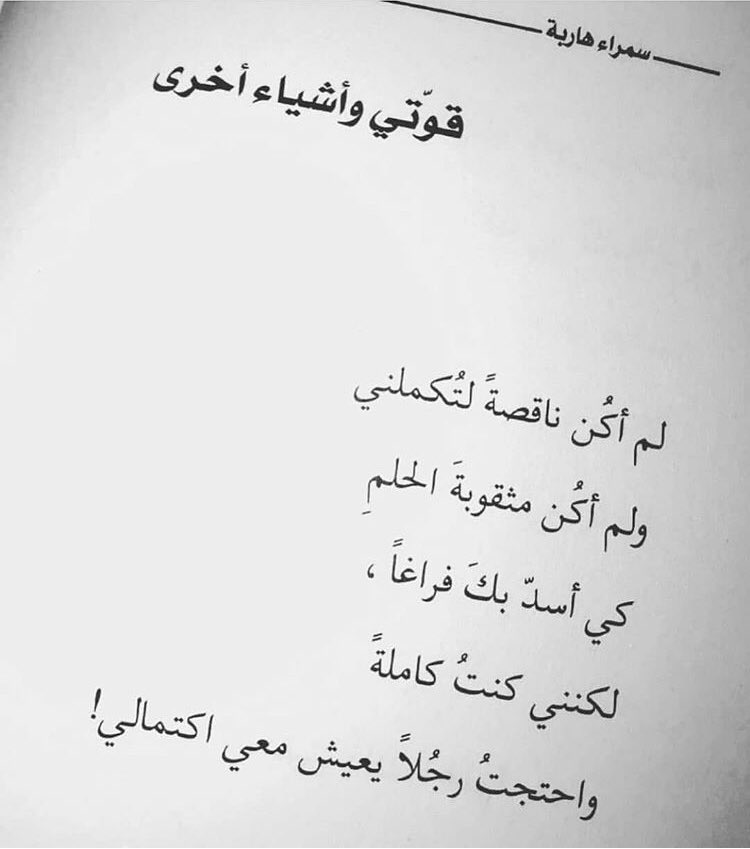 سمراء هاربة
قوّتي وأشياء أخرى
لم أكُن ناقصةً لتُكملني
ولم أكُن مثقوبةَ الحلمِ
كي أسدّ بكَ فراغاً ،
لكنني كنتُ كاملةً
واحتجتُ رجُلاً يعيش معي اكتمالي!